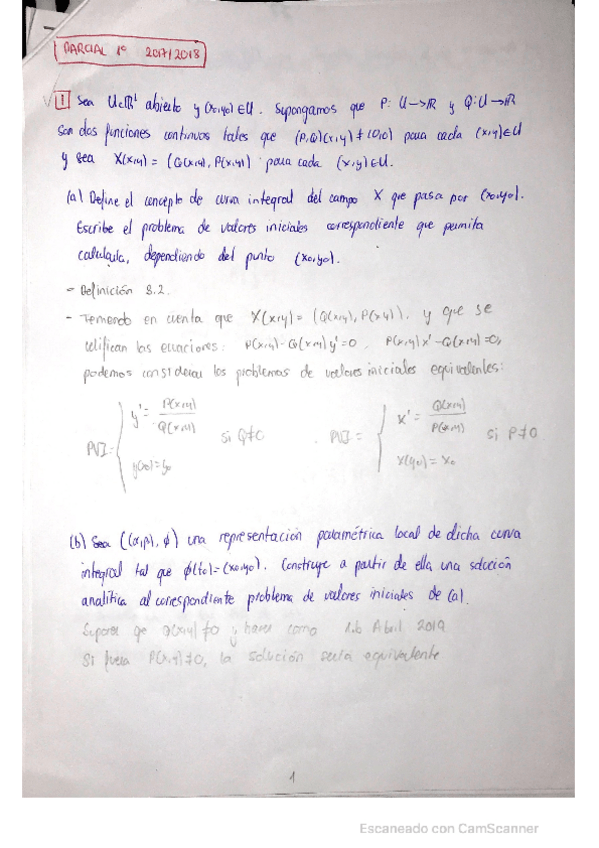 PARCIAL 1º 2017/2018
1 Sea U⊂ℝ² abierto y (x₀,y₀)∈U. Supongamos que P: U→ℝ y Q: U→ℝ
son dos funciones continuas tales que (P,Q)(x,y)≠(0,0) para cada (x,y)∈U
y sea X(x,y) = (Q(x,y), P(x,y)) para cada (x,y)∈U.
(a) Define el concepto de curva integral del campo X que pasa por (x₀,y₀).
Escribe el problema de valores iniciales correspondiente que permita
calcularla, dependiendo del punto (x₀,y₀).
- Definición 3.2.
- Teniendo en cuenta que X(x,y) = (Q(x,y), P(x,y)). y que se
verifican las ecuaciones: P(x,y)-Q(x,y)y'=0, P(x,y)x'-Q(x,y)=0,
podemos considerar los problemas de valores iniciales equivalentes:
PVI = { y' = P(x,y)/Q(x,y) si Q≠0 . PVI = { x' = Q(x,y)/P(x,y) si P≠0
y(x₀)=y₀ x(y₀)=x₀
(b) Sea ((α,β), ϕ) una representación paramétrica local de dicha curva
integral tal que ϕ(t₀)=(x₀,y₀). Construye a partir de ella una solución
analítica al correspondiente problema de valores iniciales de (a).
Suponer que Q(x,y)≠0 y hacer como 1.b Abril 2019
Si fuera P(x,y)≠0, la solución sería equivalente
1
Escaneado con CamScanner